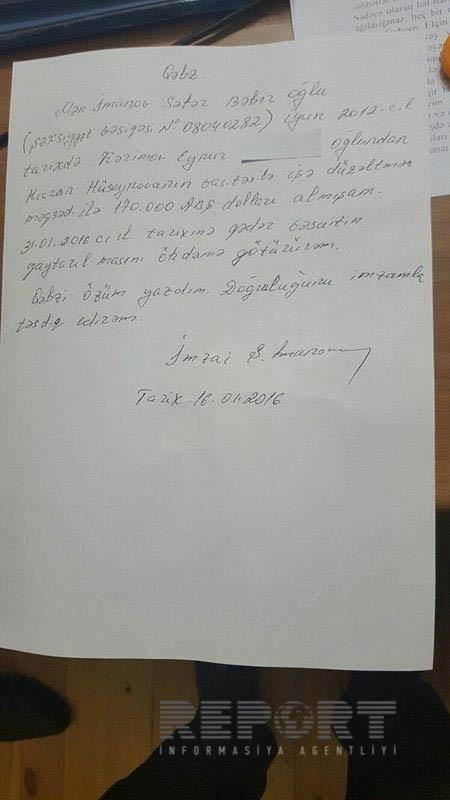 Qəbz.
Mən İmanov Səfər Bəbir oğlu
(şəxsiyyət vəsiqəsi № 08040282) iyun 2012-c il
tarixdə Kərimov Eynur oğlundan
Hicran Hüseynovanın vasitəsilə işə düzəltmək
məqsədilə 170.000 ABŞ dolları almışam.
31.01.2016 cı il tarixinə qədər vəsaitin
qaytarılmasını öhdəmə götürürəm.
Qəbzi özüm yazdım. Doğruluğunu imzamla
təsdiq edirəm.
İmza: S. İmanov
Tarix 16.01.2016.
REPORT
İNFORMASİYA AGENTLİYİ